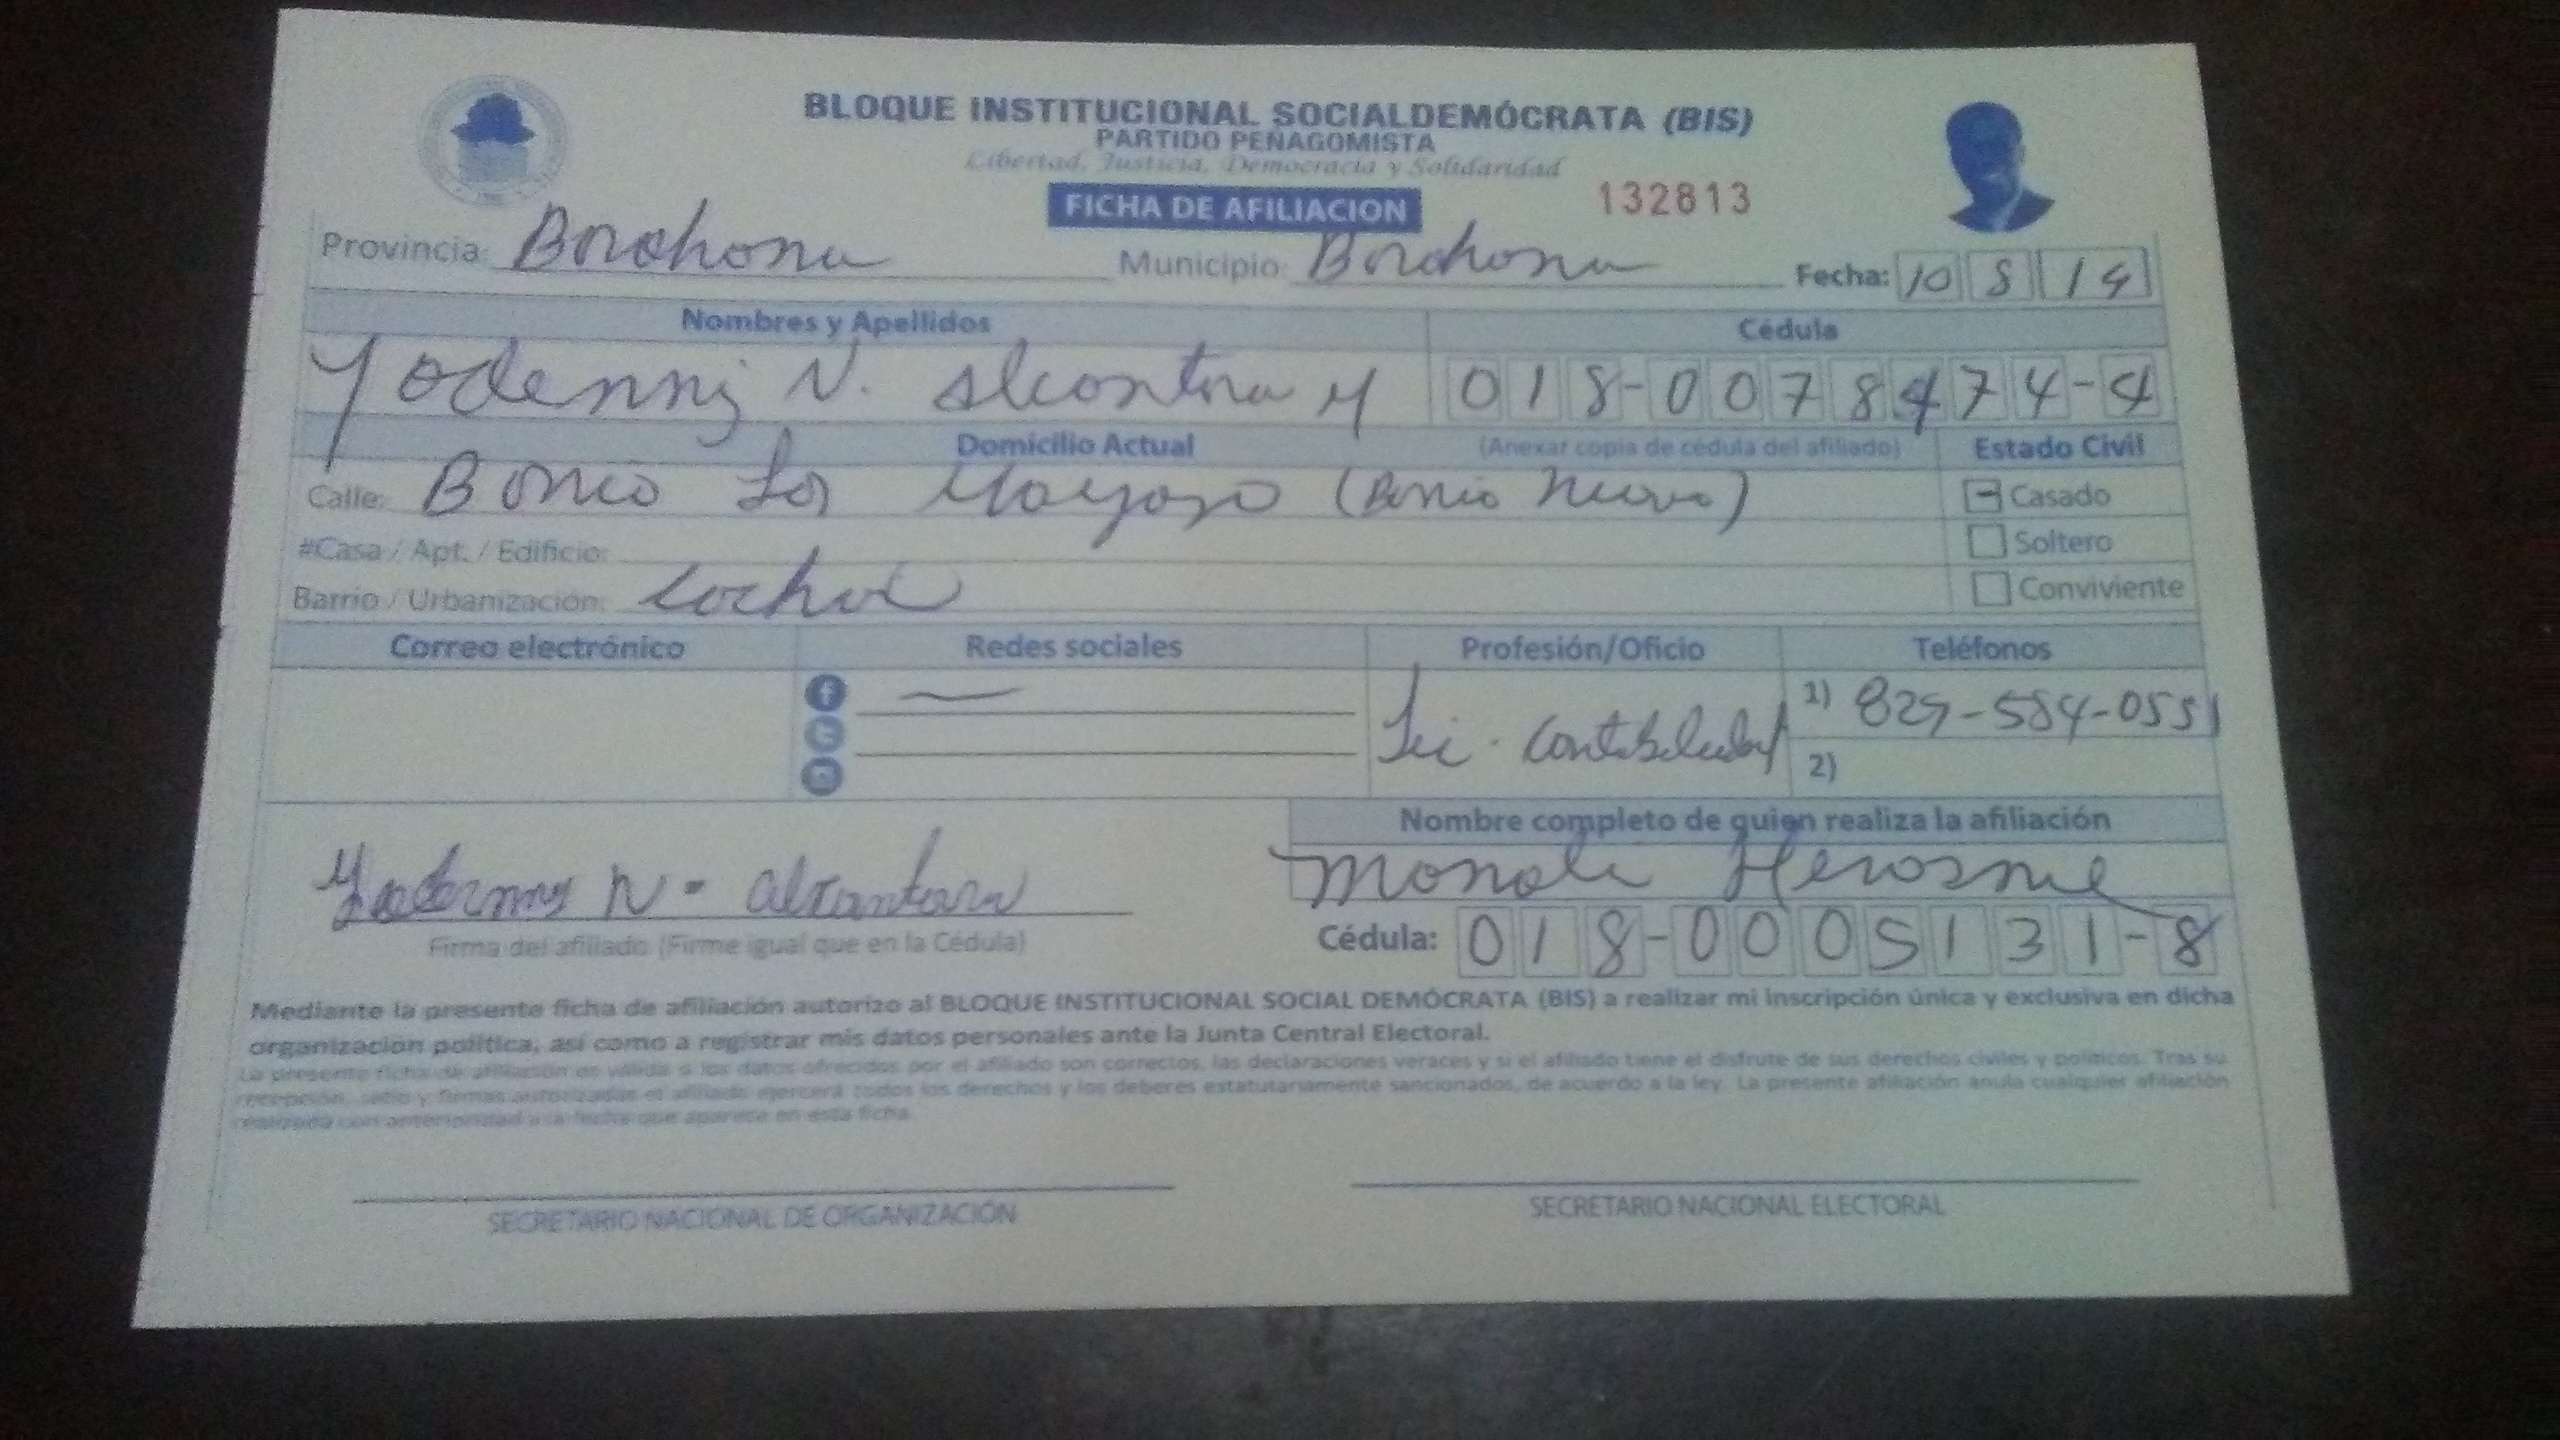 BLOQUE INSTITUCIONAL SOCIALDEMÓCRATA (BIS)
PARTIDO PEÑAGOMISTA
Libertad, Justicia, Democracia y Solidaridad
FICHA DE AFILIACION 132813
Provincia: Barahona Municipio: Barahona Fecha: 10 8 19
Nombres y Apellidos Cédula
Yodenny N. Alcantara M 018-0078474-4
Domicilio Actual (Anexar copia de cédula del afiliado) Estado Civil
Calle: Barrio Los (Barrio Nuevo) Casado
#Casa / Apt. / Edificio: Soltero
Barrio / Urbanización: Conviviente
Correo electrónico Redes sociales Profesión/Oficio Teléfonos
Lic. Contabilidad 1) 829-584-0551
2)
Nombre completo de quien realiza la afiliación
N. Alcantara
Firma del afiliado (Firme igual que en la Cédula) Cédula: 018-0005131-8
Mediante la presente ficha de afiliación autorizo al BLOQUE INSTITUCIONAL SOCIAL DEMÓCRATA (BIS) a realizar mi inscripción única y exclusiva en dicha
organización política, así como a registrar mis datos personales ante la Junta Central Electoral.
La presente ficha de afiliación es válida si los datos ofrecidos por el afiliado son correctos, las declaraciones veraces y si el afiliado tiene el disfrute de sus derechos civiles y políticos. Tras su
recepción, sello y firmas autorizadas el afiliado ejercerá todos los derechos y los deberes estatutariamente sancionados, de acuerdo a la ley. La presente afiliación anula cualquier afiliación
realizada con anterioridad a la fecha que aparece en esta ficha.
SECRETARIO NACIONAL DE ORGANIZACIÓN SECRETARIO NACIONAL ELECTORAL